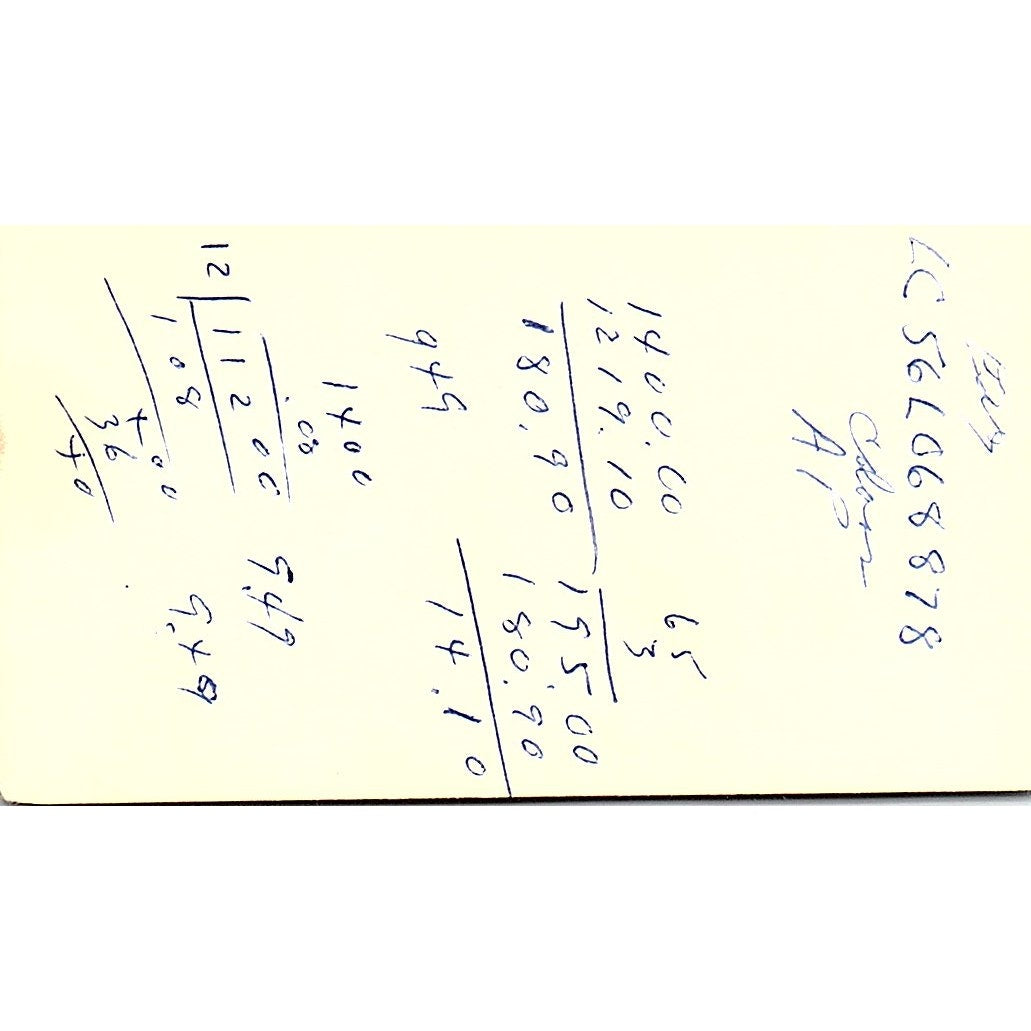 LC56L068878
AP
1400.00
1219.10
180.90
65
3
195.00
180.90
14.10
949
1400
.00
12 11200
108
400
36
40
9.49
9.49